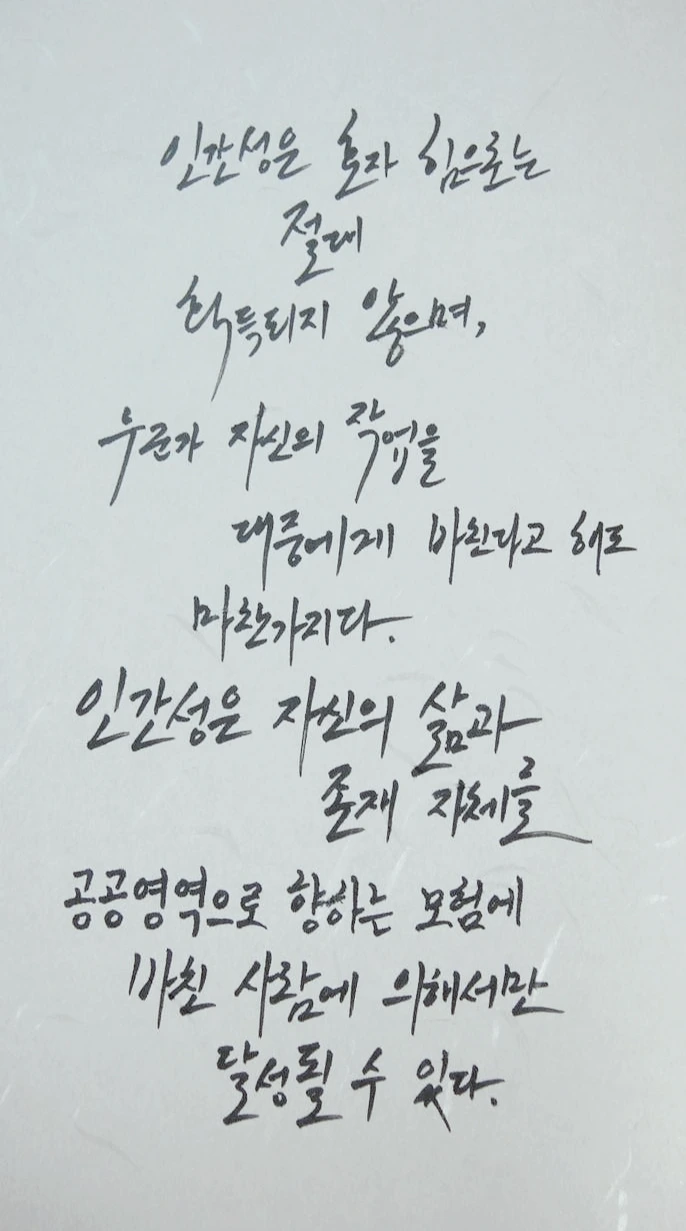 인간성은 혼자 힘으로는
절대
획득되지 않으며,
누군가 자신의 작업을
대중에게 바친다고 해도
마찬가지다.
인간성은 자신의 삶과
존재 자체를
공공영역으로 향하는 모험에
바친 사람에 의해서만
달성될 수 있다.